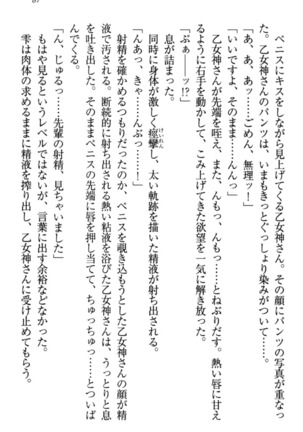 ペニスにキスをしながら見上げてくる乙女神さん。その顔にパンツの写真が重なっ
た。乙女神さんのパンツは、いまもきっとぐっしょり染みがついて……。
「あ、あ、あっ……、ごめん、無理ッ！」
「いいですよ、そのまま……んんっ」
乙女神さんが先端を咥え、また、んもっ、んもっ……とねぶりだす。熱い唇に甘え
るように右手を動かして、こみ上げてきた欲望を一気に解き放った。
「ぷぁーーッ!?」
息が詰まった。
同時に身体が激しく痙攣し、太い軌跡を描いた精液が射ち出される。
「んあっ、きゃ……んぶぶ……！」
射精を確かめるつもりだったのか、ペニスを覗き込もうとした乙女神さんの顔が精
液で汚される。断続的に射ち出される熱い粘液を浴びた乙女神さんは、うっとりと息
を吐き出した。そのままペニスの先端に唇を押し当てて、ちゅっちゅっ……とついば
む。
「ん、じゅるっ……先輩の射精、見ちゃいました」
もはや見るというレベルではないが、言葉に出す余裕などなかった。
雫は肉体の求めるままに精液を搾り出し、乙女神さんに受け止めてもらう。